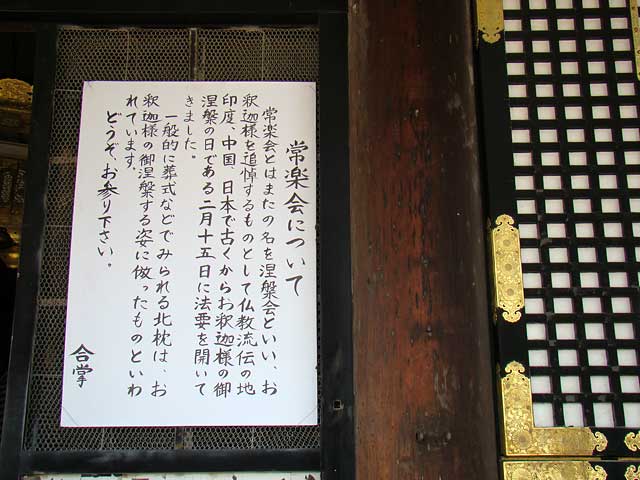 常楽会について
常楽会とはまたの名を涅槃会といい、お
釈迦様を追悼するものとして仏教流伝の地
印度、中国、日本で古くからお釈迦様の御
涅槃の日である二月十五日に法要を開いて
きました。
一般的に葬式などでみられる北枕は、お
釈迦様の御涅槃する姿に倣ったものといわ
れています。
どうぞ、お参り下さい。
合掌